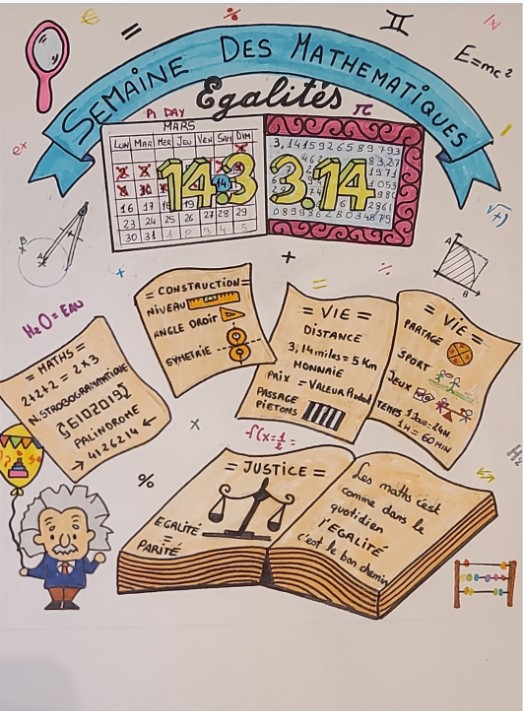 SEMAINE DES MATHEMATIQUES
Egalités
E=mc²
PI DAY
π
MARS
LUN MAR MER JEU VEN SAM DIM
14.3
14
16 17 18 19
23 24 25 26 27 28 29
30 31 1 2 3 4 5
3,14159265358979
3.14
e^x
A
B
A
B
H₂O = EAU
= MATHS =
2+2+2 = 2x3
N. STROBOGRAMMATIQUE
PALINDROME
→ 4126214 ←
= CONSTRUCTION =
NIVEAU
ANGLE DROIT
SYMETRIE
= VIE =
DISTANCE
3,14 miles = 5 Km
MONNAIE
PRIX = VALEUR Produit
PASSAGE
PIETONS
= VIE =
PARTAGE
SPORT
JEUX
TEMPS 1 Jour = 24H
1H = 60 MIN
f(x = 1/2 =
%
= JUSTICE =
EGALITÉ
=
PARITÉ
Les maths c'est
comme dans le
quotidien
l'EGALITÉ
c'est le bon chemin